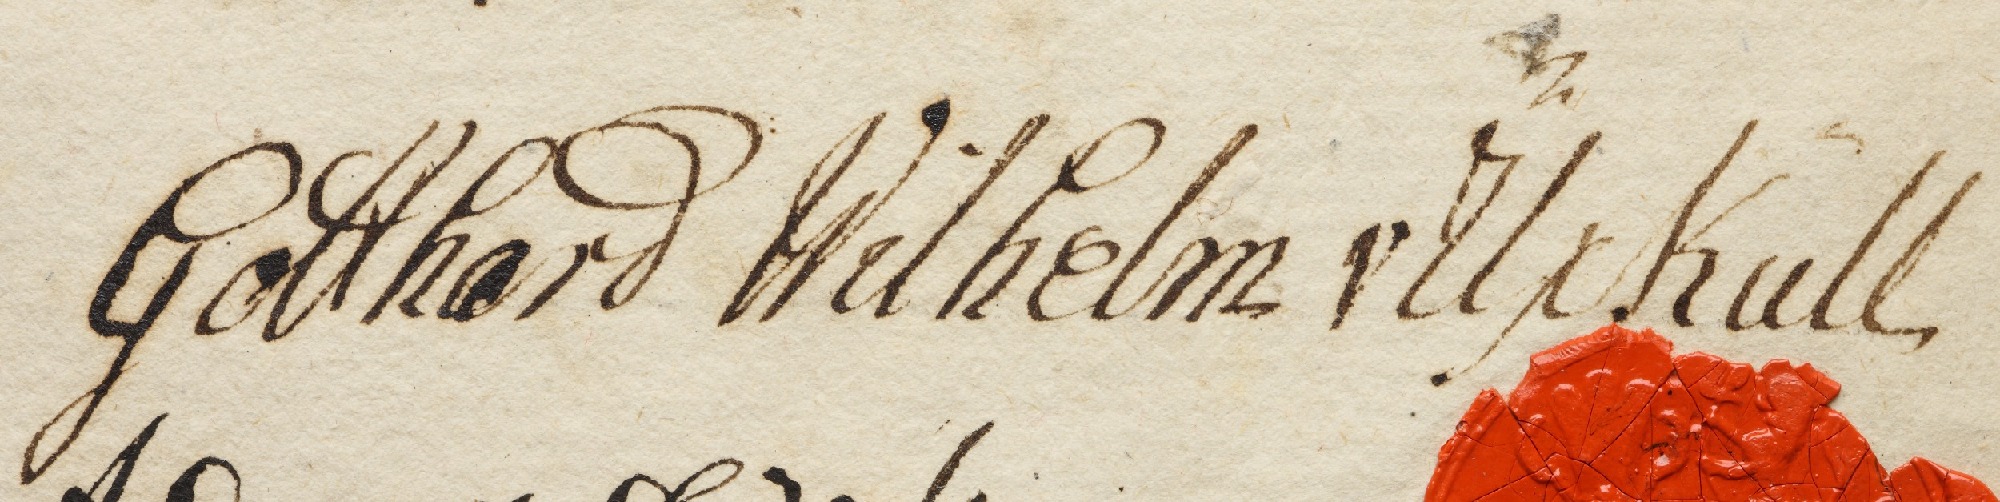 Gotthard Wilhelm v Üxküll